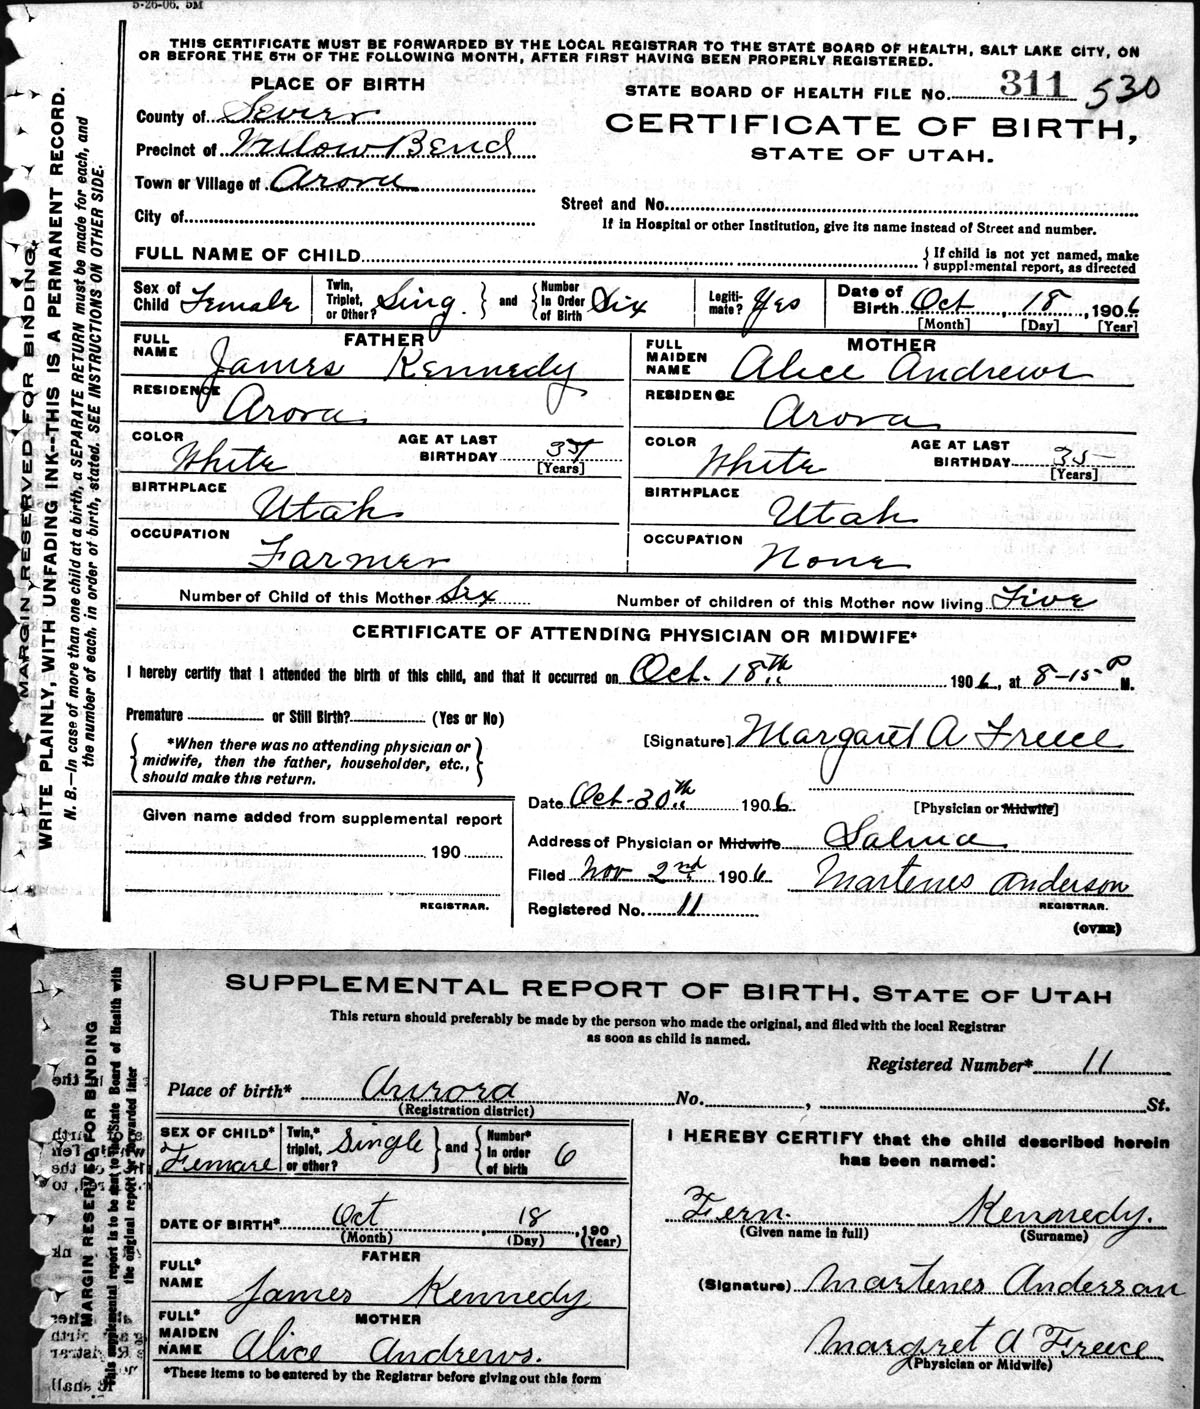 5-26-06. 5M
THIS CERTIFICATE MUST BE FORWARDED BY THE LOCAL REGISTRAR TO THE STATE BOARD OF HEALTH, SALT LAKE CITY, ON
OR BEFORE THE 5TH OF THE FOLLOWING MONTH, AFTER FIRST HAVING BEEN PROPERLY REGISTERED.
MARGIN RESERVED FOR BINDING.
WRITE PLAINLY, WITH UNFADING INK--THIS IS A PERMANENT RECORD.
N. B.—In case of more than one child at a birth, a SEPARATE RETURN must be made for each, and
the number of each, in order of birth, stated. SEE INSTRUCTIONS ON OTHER SIDE.
PLACE OF BIRTH
STATE BOARD OF HEALTH FILE No. 311 530
County of Sevier
CERTIFICATE OF BIRTH,
STATE OF UTAH.
Precinct of Willow Bend
Town or Village of Arora
City of
Street and No.
If in Hospital or other Institution, give its name instead of Street and number.
FULL NAME OF CHILD
{ If child is not yet named, make
supplemental report, as directed
Sex of Child Female
Twin, Triplet, or Other? Sing. } and { Number In Order of Birth Six
Legitimate? Yes
Date of Birth Oct, 18, 1906
[Month] [Day] [Year]
FATHER
MOTHER
FULL NAME James Kennedy
FULL MAIDEN NAME Alice Andrews
RESIDENCE Arora
RESIDENCE Arora
COLOR White AGE AT LAST BIRTHDAY [Years]
COLOR White AGE AT LAST BIRTHDAY 35 [Years]
BIRTHPLACE Utah
BIRTHPLACE Utah
OCCUPATION Farmer
OCCUPATION None
Number of Child of this Mother Six Number of children of this Mother now living Five
CERTIFICATE OF ATTENDING PHYSICIAN OR MIDWIFE*
I hereby certify that I attended the birth of this child, and that it occurred on Oct. 18th 1906, at 8-15 P M.
Premature or Still Birth? (Yes or No)
{ *When there was no attending physician or
midwife, then the father, householder, etc.,
should make this return. }
[Signature] Margaret A Freece
[Physician or Midwife]
Date Oct-30th 1906
Given name added from supplemental report
190
REGISTRAR.
Address of Physician or Midwife Salina
Filed Nov 2nd 1906 Martenes Anderson
REGISTRAR.
Registered No. 11
(OVER)
MARGIN RESERVED FOR BINDING
This supplemental report is to be sent to the State Board of Health with
the original report or forwarded later
SUPPLEMENTAL REPORT OF BIRTH, STATE OF UTAH
This return should preferably be made by the person who made the original, and filed with the local Registrar
as soon as child is named.
Registered Number* 11
Place of birth* Aurora No. , St.
(Registration district)
SEX OF CHILD* Female
Twin,* triplet, or other? Single } and { Number* In order of birth 6
I HEREBY CERTIFY that the child described herein
has been named:
DATE OF BIRTH* Oct, 18, 190
(Month) (Day) (Year)
Fern. Kennedy.
(Given name in full) (Surname)
FATHER
FULL* NAME James Kennedy
(Signature) Martenes Anderson
MOTHER
FULL* MAIDEN NAME Alice Andrews.
Margret A Freece
(Physician or Midwife)
*These items to be entered by the Registrar before giving out this form